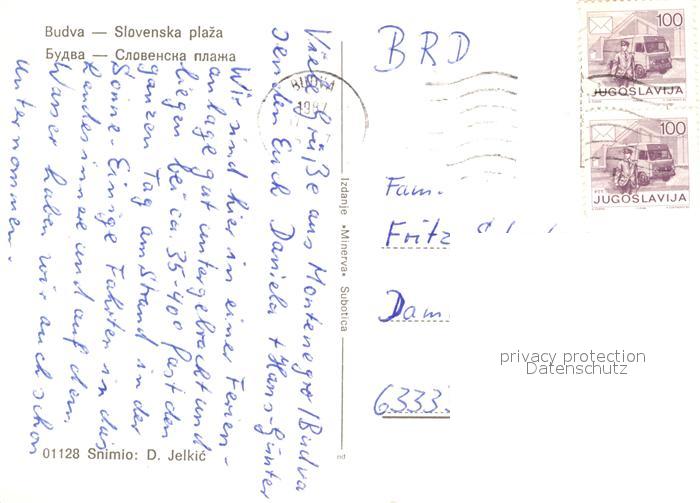 Budva — Slovenska plaža
Будва — Словенска плажа
Viele Grüße aus Montenegro/Budva
senden Euch Daniela + Hans-Günter
Wir sind hier in einer Ferien-
anlage gut untergebracht und
liegen bei ca. 35-40° fast den
ganzen Tag am Strand in der
Sonne. Einige Fahrten in das
Landesinnere und auf dem
Wasser haben wir auch schon
unternommen.
01128 Snimio: D. Jelkić
Izdanje »Minerva« Subotica
BUDVA
1987
100
JUGOSLAVIJA
100
JUGOSLAVIJA
BRD
Fam.
Fritz
Dam
6333
privacy protection
Datenschutz